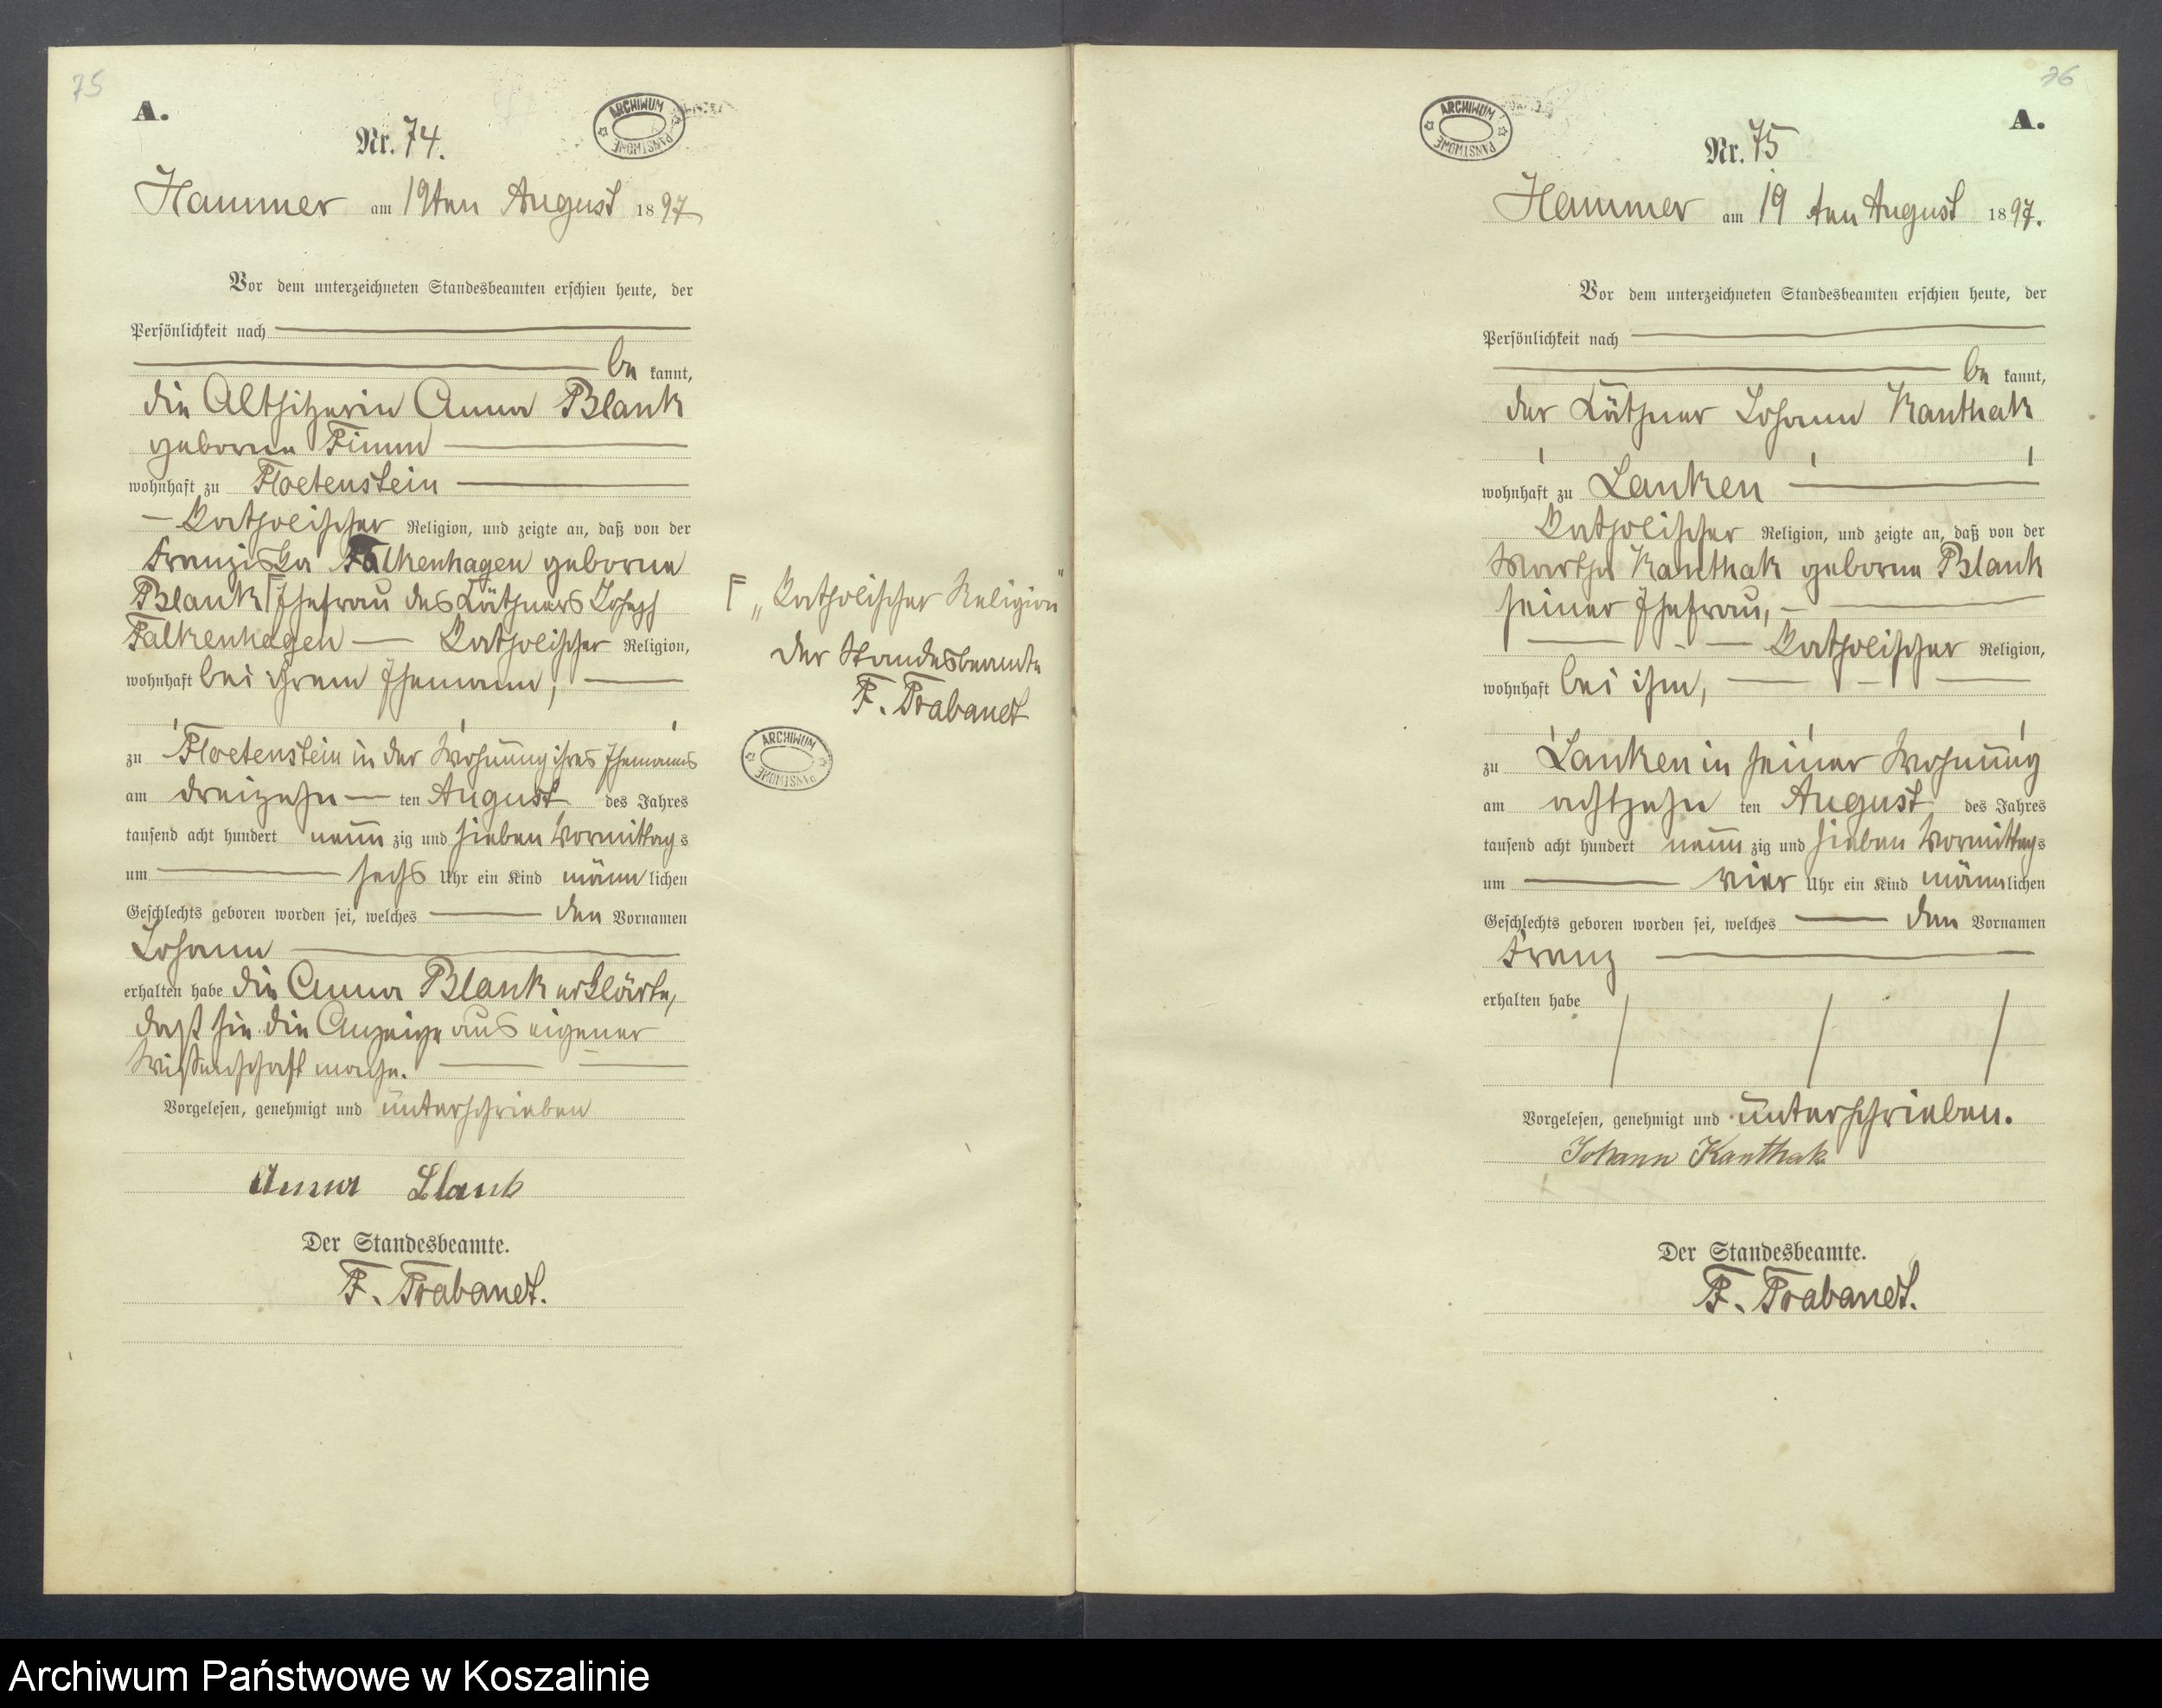 75
A.
Nr. 74.
ARCHIWUM PAŃSTWOWE
Hammer am 19ten August 1897
Vor dem unterzeichneten Standesbeamten erschien heute, der
Persönlichkeit nach
be kannt,
die Altsitzerin Anna Blank
geborne Timm
wohnhaft zu Floetenstein
Katholischer Religion, und zeigte an, daß von der
Franziska Falkenhagen geborne
Blank Γ Ehefrau des Käthners Joseph
Falkenhagen Katholischer Religion,
wohnhaft bei ihrem Ehemann,
zu Floetenstein in der Wohnung ihres Ehemanns
am dreizehn ten August des Jahres
tausend acht hundert neun zig und sieben Vormittag s
um sechs Uhr ein Kind männ lichen
Geschlechts geboren worden sei, welches den Vornamen
Johann
erhalten habe die Anna Blank erklärte,
daß sie die Anzeige aus eigener
Wissenschaft mache.
Vorgelesen, genehmigt und unterschrieben
Anna Blank
Der Standesbeamte.
F. Prabanet.
Γ „Katholischer Religion"
Der Standesbeamte
F. Prabanet
ARCHIWUM PAŃSTWOWE
76
A.
ARCHIWUM PAŃSTWOWE
Nr. 75
Hammer am 19 ten August 1897.
Vor dem unterzeichneten Standesbeamten erschien heute, der
Persönlichkeit nach
be kannt,
der Käthner Johann Kanthak
wohnhaft zu Lanken
Katholischer Religion, und zeigte an, daß von der
Martha Kanthak geborne Blank
seiner Ehefrau,
Katholischer Religion,
wohnhaft bei ihm,
zu Lanken in seiner Wohnung
am achtzehn ten August des Jahres
tausend acht hundert neun zig und sieben Vormittags
um vier Uhr ein Kind männlichen
Geschlechts geboren worden sei, welches den Vornamen
Franz
erhalten habe
Vorgelesen, genehmigt und unterschrieben.
Johann Kanthak
Der Standesbeamte.
F. Prabanet.
Archiwum Państwowe w Koszalinie